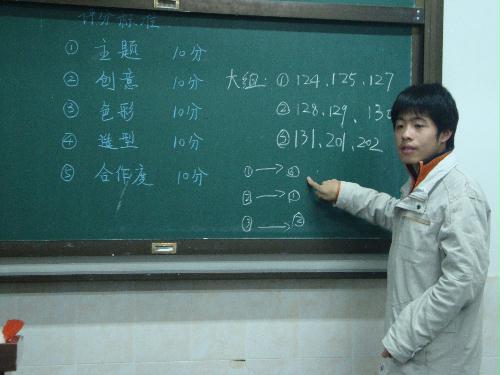 评分标准
① 主题 10分
② 创意 10分
③ 色彩 10分
④ 造型 10分
⑤ 合作度 10分
大组: ① 124、125、127
② 128、129、130
③ 131、201、202
① → ③
② → ①
③ → ②